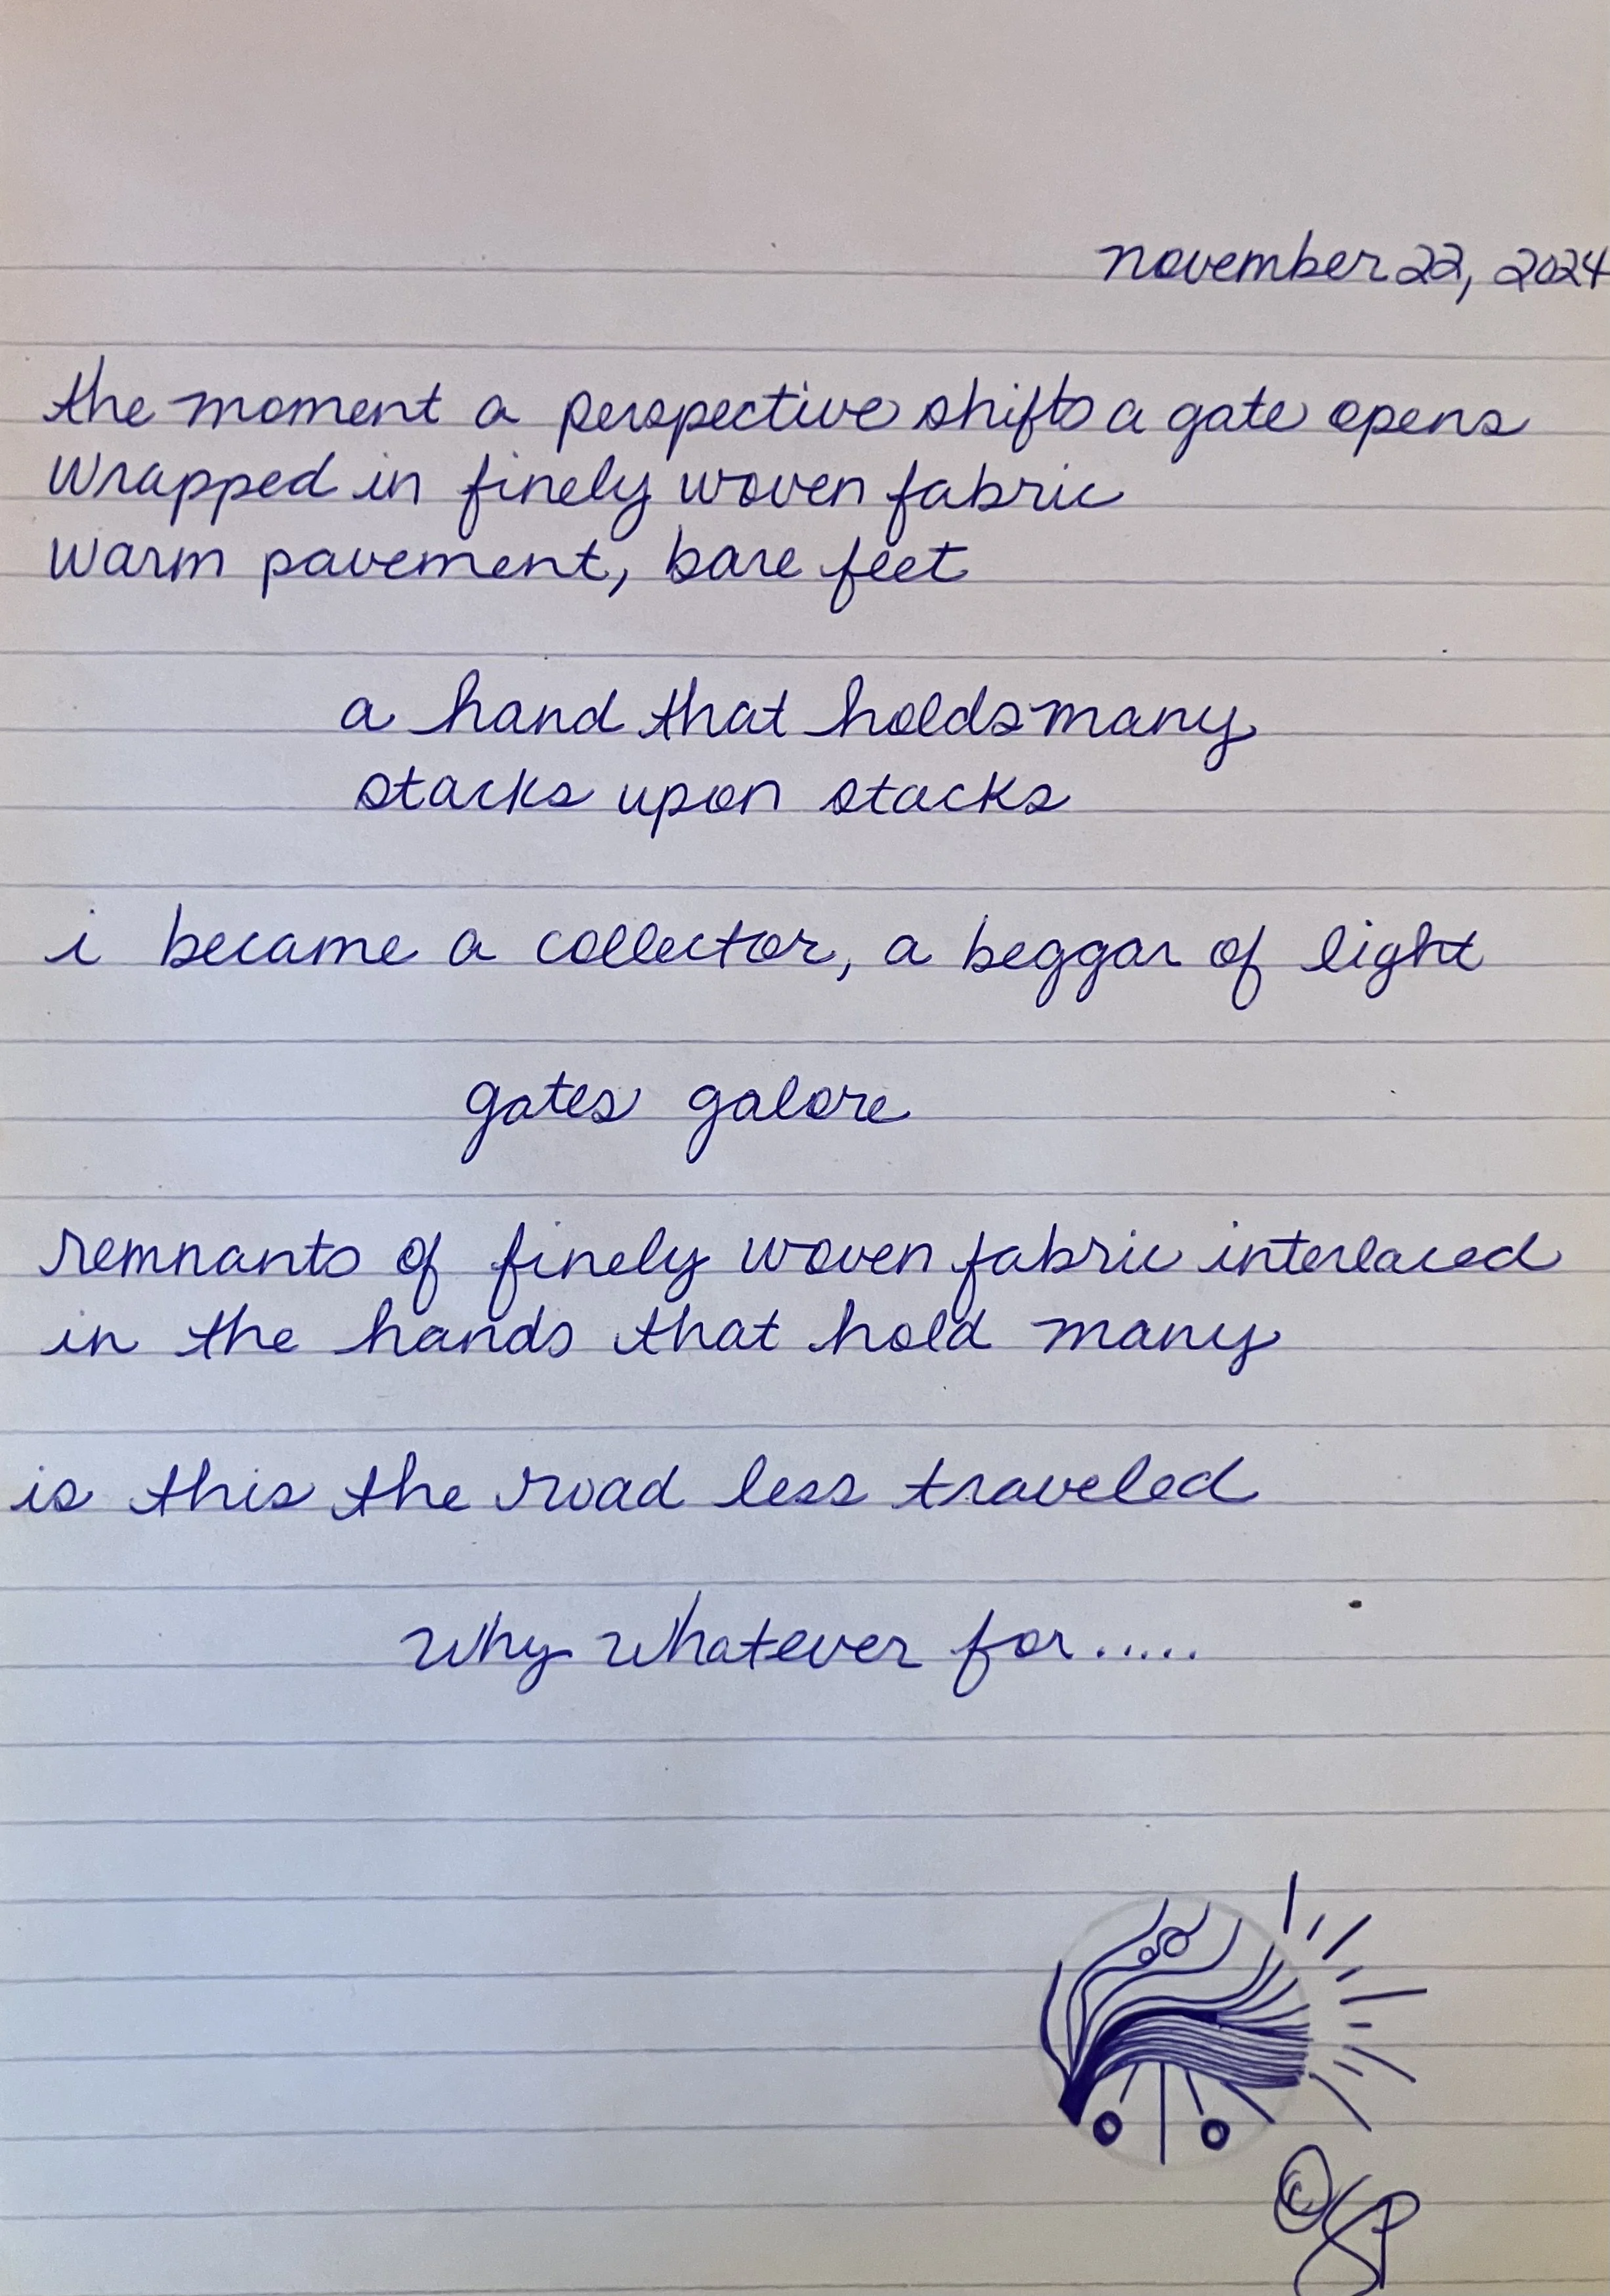 november 22, 2024
the moment a perspective shifts a gate opens
wrapped in finely woven fabric
warm pavement, bare feet
a hand that holds many
stacks upon stacks
i became a collector, a beggar of light
gates galore
remnants of finely woven fabric interlaced
in the hands that hold many
is this the road less traveled
why whatever for.....
©